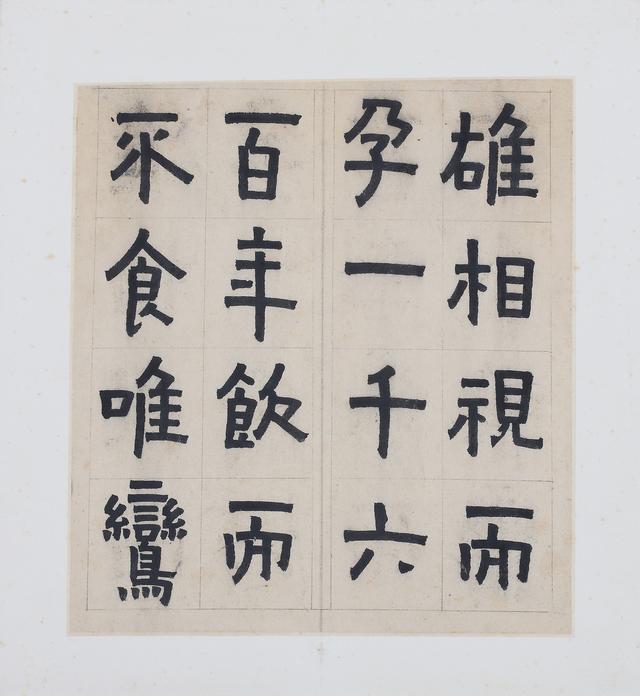 雄相視而
孕一千六
百年飲而
不食唯鸞